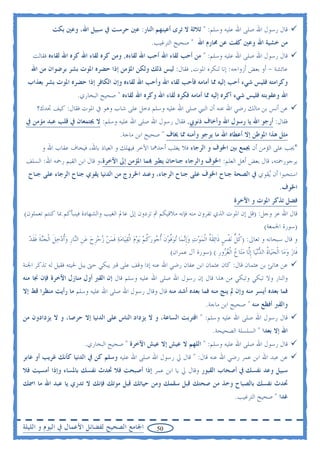 قال رسول الله صلى الله عليه وسلم: " ثلاثة لا ترى أعينهم النار: عين حرست في سبيل الله، وعين بكت
من خشية الله وعين كفت عن محارم الله " صحيح الترغيب.
قال رسول الله صلى الله عليه وسلم: " من أحب لقاء الله أحب الله لقاءه، ومن كره لقاء الله كره الله لقاءه فقالت
عائشة – أو بعض أزواجه: إنا لنكره الموت, فقال: ليس ذلك ولكن المؤمن إذا حضره الموت بشر برضوان من الله
وكرامته فليس شيء أحب إليه مما أمامه فأحب لقاء الله وأحب الله لقاءه وإن الكافر إذا حضره الموت بشر بعذاب
الله وعقوبته فليس شيء أكره إليه مما أمامه فكره لقاء الله وكره الله لقاءه " صحيح البخاري.
عن أنس بن مالك رضي الله عنه أن النبي صلى الله عليه وسلم دخل على شاب وهو في الموت فقال: كيف تجدك؟
فقال: أرجو الله يا رسول الله وأخاف ذنوبي. فقال رسول الله صلى الله عليه وسلم: " لا يجتمعان في قلب عبد مؤمن في
مثل هذا الموطن إلا أعطاه الله ما يرجو وأمنه مما يخاف " صحيح ابن ماجة.
*يجب على المؤمن أن يجمع بين الخوف و الرجاء فلا يغلب أحدهما الآخر فيهلك و العياذ بالله، فيخاف عقاب الله و
يرجو رحمته، قال بعض أهل العلم: الخوف والرجاء جناحان يطير بهما المؤمن إلى الآخرة، و قال ابن القيم رحمه الله: السلف
استحبوا أن يُقوي في الصحة جناح الخوف على جناح الرجاء، وعند الخروج من الدنيا يقوي جناح الرجاء على جناح
الخوف.
فضل تذكر الموت و الآخرة
قال الله عز وجل: (قل إن الموت الذي تفرون منه فإنه ملاقيكم ثم تردون إلى عالم الغيب والشهادة فينبأكم بما كنتم تعملون)
(سورة الجمعة)
و قال سبحانه و تعالى: (كُلُّ نَفْسٍ ذَائِقَةُ الْمَوْتِ وَإِنَّمَا تُوَفَّوْنَ أُجُورَكُمْ يَوْمَ الْقِيَامَةِ فَمَنْ زُحْزِحَ عَنِ النَّارِ وَأُدْخِلَ الْجَنَّةَ فَقَدْ
فَازَ وَمَا الْحَيَاةُ الدُّنْيَا إِلَّا مَتَاعُ الْغُرُورِ ) ( سورة آل عمران)
عن هانئ بن عثمان قال: كان عثمان ابن عفان رضي الله عنه إذا وقف على قبر يبكي حتى يبل لحيته فقيل له تذكر الجنة
والنار ولا تبكي وتبكي من هذا قال إن رسول الله صلى الله عليه وسلم قال إن القبر أول منازل الآخرة فإن نجا منه
فما بعده أيسر منه وإن لم ينج منه فما بعده أشد منه قال وقال رسول الله صلى الله عليه وسلم ما رأيت منظرا قط إلا
والقبر أفظع منه " صحيح ابن ماجة.
قال رسول الله صلى الله عليه وسلم: " اقتربت الساعة، و لا يزداد الناس على الدنيا إلا حرصا، و لا يزدادون من
الله إلا بعدا " السلسلة الصحيحة.
قال رسول الله صلى الله عليه وسلم: " اللهم لا عيش إلا عيش الآخرة " صحيح البخاري.
عن عبد الله ابن عمر رضي الله عنه قال: " قال لي رسول الله صلى الله عليه وسلم كن في الدنيا كأنك غريب أو عابر
سبيل وعد نفسك في أصحاب القبور وقال لي يا ابن عمر إذا أصبحت فلا تحدث نفسك بالمساء وإذا أمسيت فلا
تحدث نفسك بالصباح وخذ من صحتك قبل سقمك ومن حياتك قبل موتك فإنك لا تدري يا عبد الله ما اسمك
غدا " صحيح الترغيب.
50 الجامع الصحيح لفضائل الأعمال في اليوم و الليلة